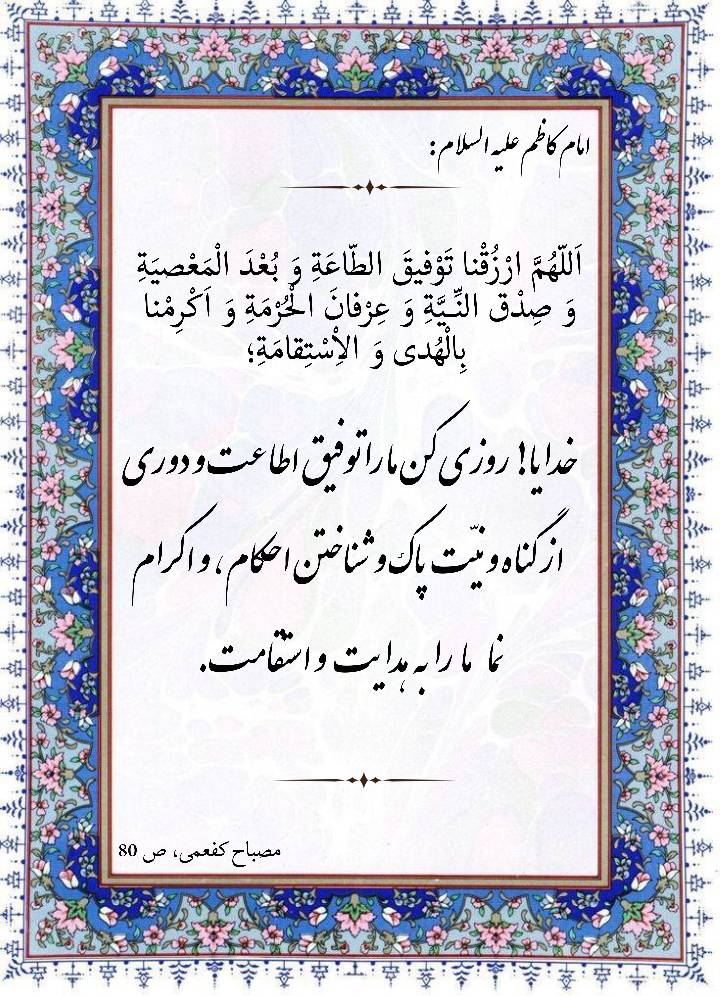 امام کاظم علیه السلام:
اَللّهُمَّ ارْزُقْنا تَوْفیقَ الطّاعَةِ وَ بُعْدَ الْمَعْصیَةِ
وَ صِدْق النِّـیَّةِ وَ عِرْفانَ الْحُرْمَةِ وَ اَکْرِمْنا
بِالْهُدی وَ الاِْسْتِقامَةِ؛
خدایا! روزی کن ما را توفیق اطاعت و دوری
از گناه و نیّت پاک و شناختن احکام، و اکرام
نما ما را به هدایت و استقامت.
مصباح کفعمی، ص 80